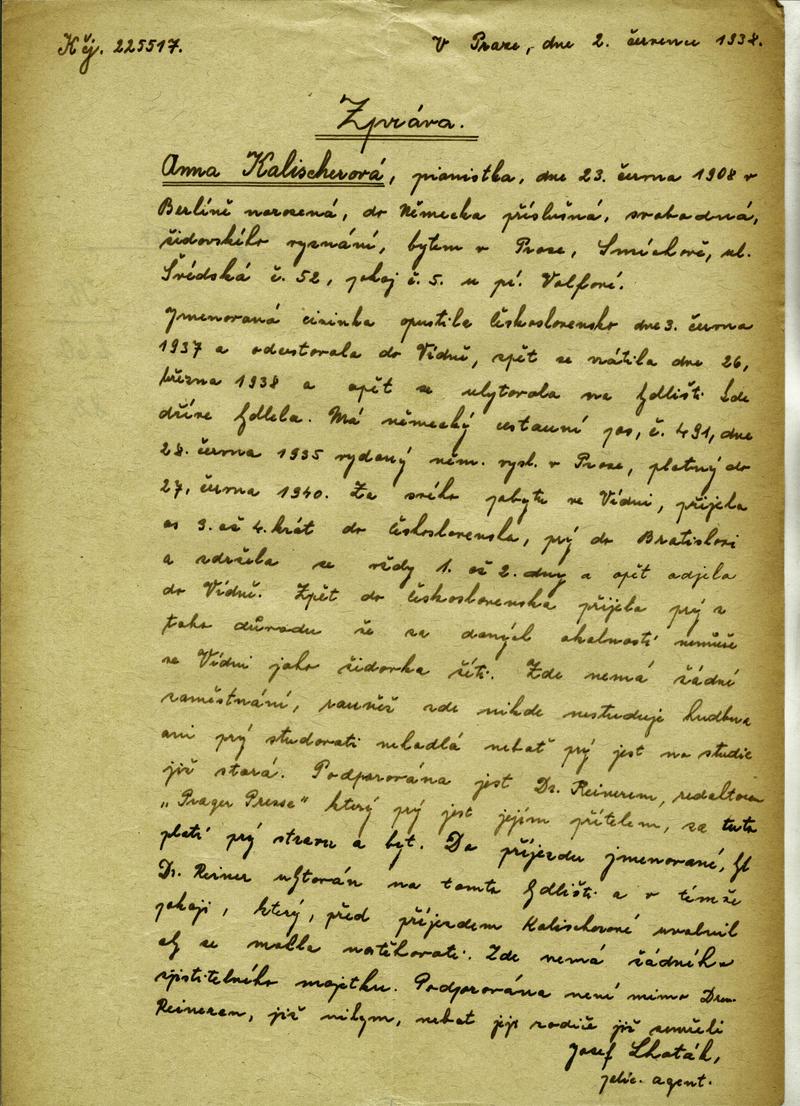 K čj. 225517.
V Praze, dne 2. července 1938.
Zpráva.
Anna Kalischerová, pianistka, dne 23. června 1908 v
Berlíně narozená, do Německa příslušná, svobodná,
židovského vyznání, bytem v Praze, Smíchově, ul.
Švédská č. 52, pokoj č. 5. u pí. Volfové.
Jmenovaná cizinka opustila Československo dne 3. června
1937 a odcestovala do Vídně, zpět se vrátila dne 26,
března 1938 a opět se ubytovala na bydlišti kde
dříve bydlela. Má německý cestovní pas, č. 491, dne
28. června 1935 vydaný něm. vysl. v Praze, platný do
27, června 1940. Za svého pobytu ve Vídni, přijela
as 3. až 4. krát do Československa, prý do Bratislavi
a zdržela se vždy 1. až 2. dny a opět odjela
do Vídně. Zpět do Československa přijela prý z
toho důvodu že za daných okolností nemůže
ve Vídni jako židovka žíti. Zde nemá žádné
zaměstnání, rovněž zde nikde nestuduje hudbu a
ani prý studovati nehodlá neboť prý jest na studie
již stará. Podporována jest Dr. Reinerem, redaktorem
„Prager Presse" který prý jest jejím přítelem, za tuto
platí prý stravu a byt. Do příjezdu jmenované, byl
Dr. Reiner ubytován na tomto bydlišti a v témže
pokoji, který, před příjezdem Kalischerové uvolnil
aby se mohla nastěhovati. Zde nemá žádného
zjistitelného majetku. Podporována není mimo Drem.
Reinerem, již nikým, neboť její rodiče již zemřeli
Josef Lhoták,
polic. agent.